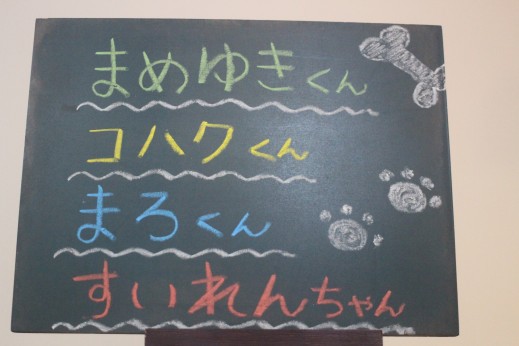 まめゆきくん
コハクくん
まろくん
すいれんちゃん